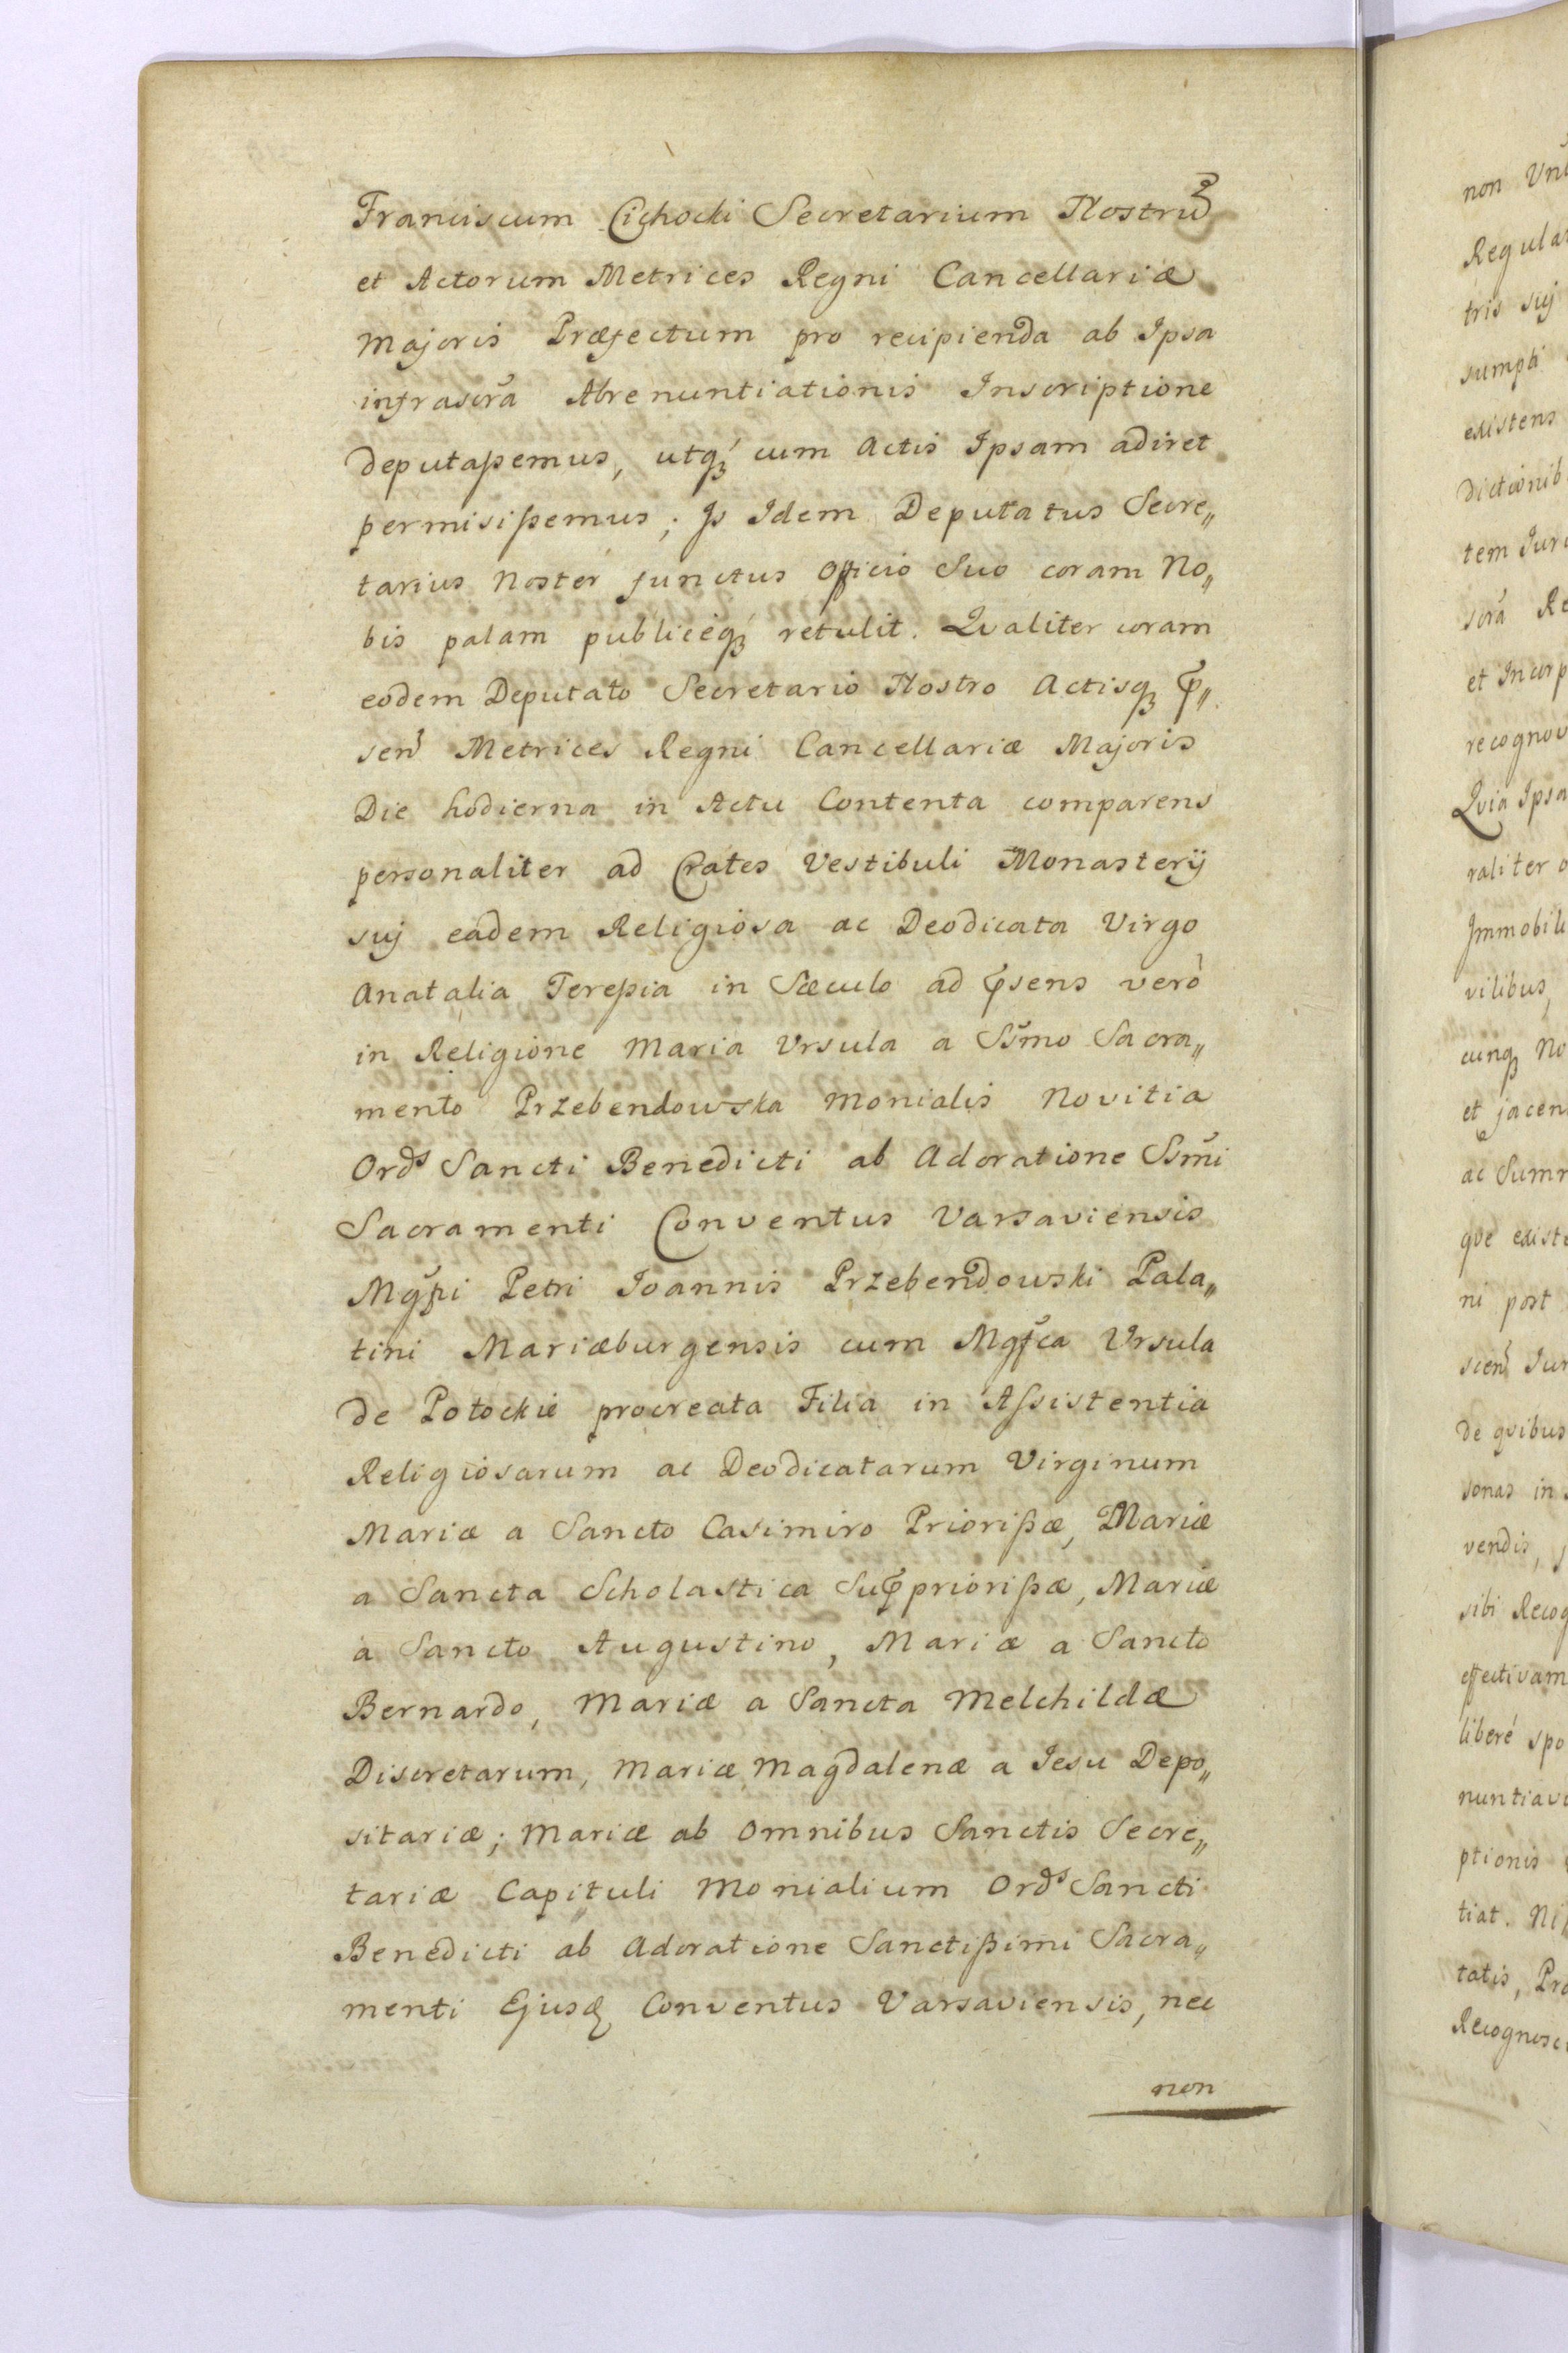 Franciscum Cichocki Secretarium Nostrũ
et Actorum Metrices Regni Cancellariæ
Majoris Præfectum pro recipienda ab Ipsa
infrascrã Abrenuntiationis Inscriptione
deputaßemus, utq́ꝫ cum Actis Ipsam adiret
permisißemus; Is Idem Deputatus Secre„
tarius Noster functus Officio Suo coram No„
bis palam publiceq́ꝫ retulit. Qvaliter coram
eodem Deputato Secretario Nostro Actisqꝫ p̃„
sen̑ Metrices Regni Cancellariæ Majoris
Die hodierna in Actu Contenta comparens
personaliter ad Crates Vestibuli Monasterij
suj eadem Religiosa ac Deodicata Virgo
Anatalia Tereßia in Sæculo ad p̃sens verò
in Religione Maria Vrsula a Ss̃mo Sacra„
mento Przebendowska Monialis Novitia
Ord̃s Sancti Benedicti ab Adoratione Ss̃mi
Sacramenti Conventus Varsaviensis
Mgf̃ci Petri Ioannis Przebendowski Pala„
tini Mariæburgensis cum Mgf̃ca Vrsula
de Potockie procreata Filia in Aſsistentia
Religiosarum ac Deodicatarum Virginum
Mariæ a Sancto Casimiro Priorißæ, Mariæ
a Sancta Scholastica Sup̃priorißæ, Mariæ
a Sancto Augustino, Mariæ a Sancto
Bernardo, Mariæ a Sancta Melchildæ
Discretarum, Mariæ Magdalenæ a Iesu Depo„
sitariæ; Mariæ ab Omnibus Sanctis Secre„
tariæ Capituli Monialium Ord̃s Sancti
Benedicti ab Adoratione Sanctißimi Sacra„
menti Ejusꝗ Conventus Varsaviensis, nec
non
non
Regular
tris suj
sumpti
existens
Dictionib
tem Iur
scrã Re
et Incorp
recognov
Qvia Ipsa
raliter
Immobili
vilibus,
cunqꝫ No
et jacen
ac Summ
qve existe
ni post
scien̑ Iur
de qvibus
sonas in
vendis,
sibi Recog
effectivam
liberé spo
nuntiavi
ptionis
tiat. Ni
tatis, Pro
Recognosc